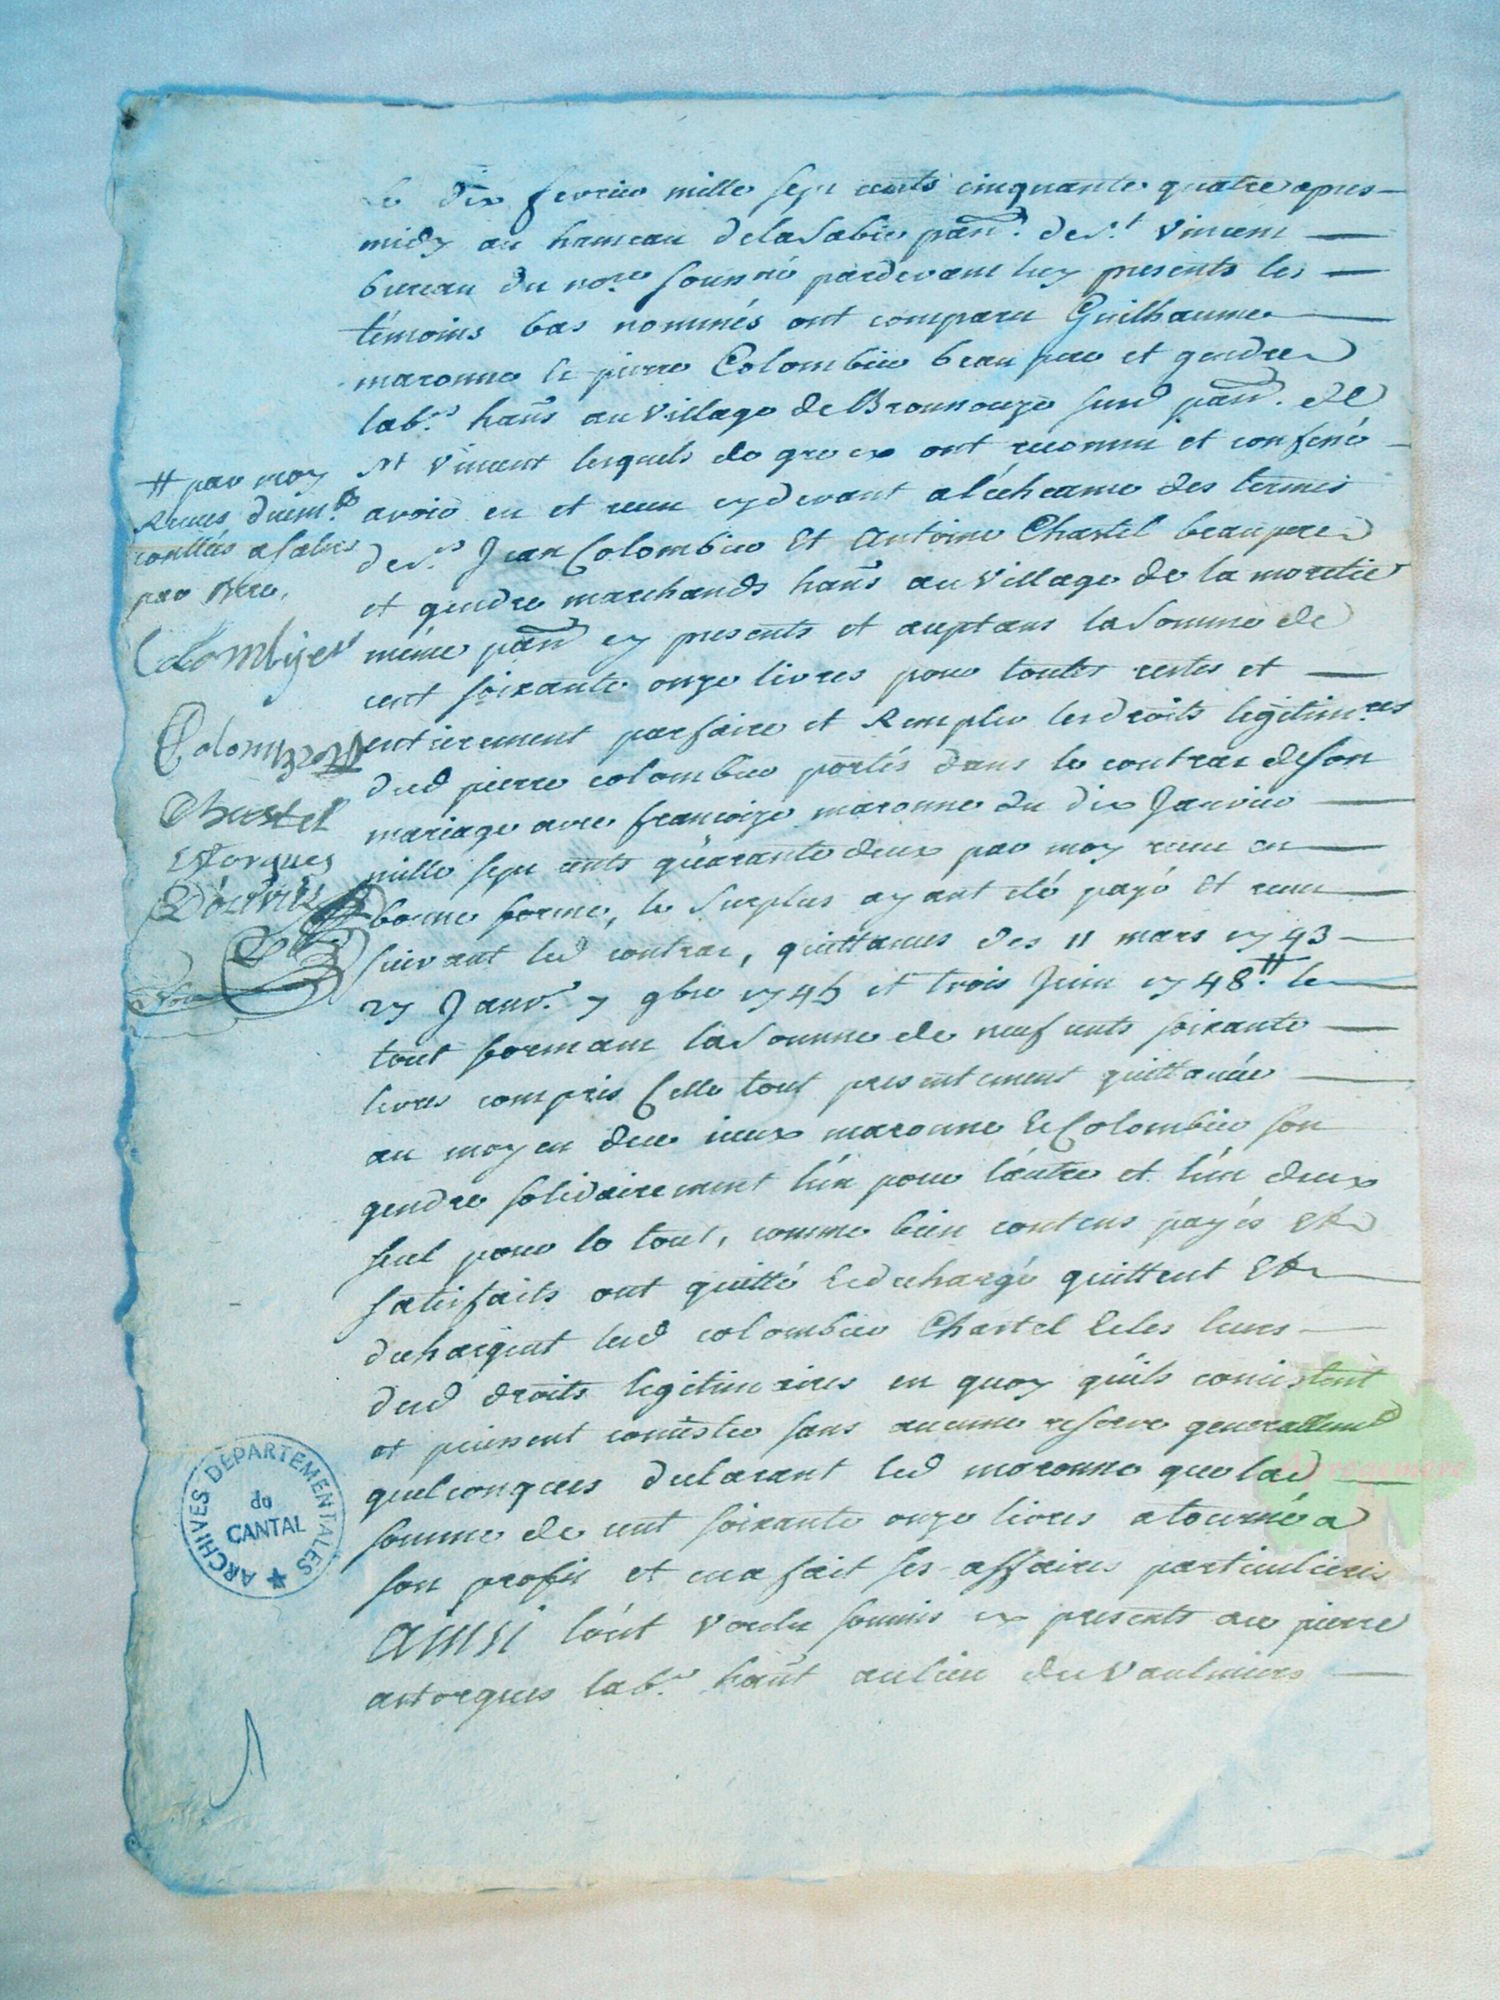 Le dix fevrier mille sept cents cinquante quatre apres
midy au hameau delaSabie parr. de St Vincent
bureau du nore soussné pardevant luy presents les
témoins bas nommés ont comparu Guilhaume
maronne & pierre Colombier beau pere et gendre
labrs hans au Village de Brounouze susd parr. de
St Vincent lesquels de gre ont reconnu et confessé
avoir eu et receu cy devant a lécheance des termes
de srs Jean Colombier Et Antoine Chastel beaupere
et gendre marchands hans au village de la moretie
même parr cy presents et aceptans laSomme de
cent soixante onze livres pour toutes restes et
entierement parfaire et Remplir les droits legitimres
dud pierre colombier portés dans le contrac deson
mariage avec françoize maronne du dix Janvier
mille sept cents quarante deux par moy receu en
bonne forme, le surplus ayant eté payé et receu
suivant led contrac, quittances des 11 mars 1743
27 Janvr. 7 9bre 1745 et trois Juin 1748 # le
tout formant laSomme de neuf cents soixante
livres compris Celle tout presentement quittancée
au moyen dece iceux maronne & Colombier son
gendre solidairement l'un pour l'autre et l'un deux
seul pour le tout, comme bien contens payés Et
satisfaits ont quitté & dechargé quittent Et
dechargent lesd colombier Chastel & les leurs
desd droits legitimaires en quoy quils consistent
et peuvent consister sans aucune reserve generallemt
quelconques declarant led maronne que lad
somme de cent soixante onze livres a tourné a
son profit et en a fait ses affaires particulieres
AINSI l'ont voulu soumis presents sr pierre
astorgues labr. hant aulieu du Vaulmiers
# par moy
Receues duemt
conllées a salers
par
Colombier
Colombier
Chastel
Estorgues
ARCHIVES DÉPARTEMENTALES
du
CANTAL